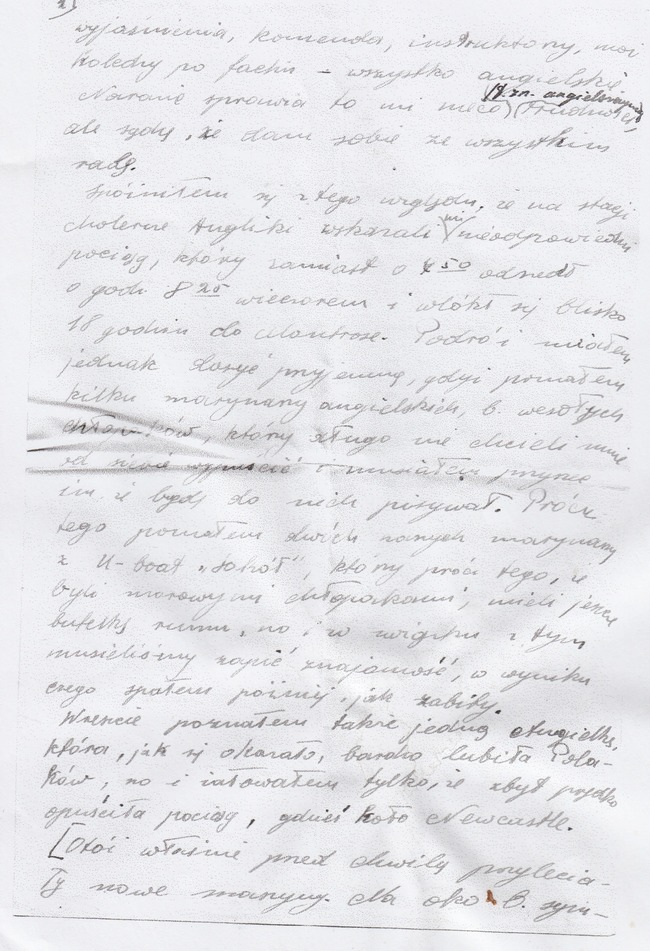 2)
wyjaśnienia, komenda, instruktorzy, moi
koledzy po fachu – wszystko angielskie
(t. zn. angielszczyzna)
Narazie sprawia to mi nieco trudności,
ale sądzę, że dam sobie ze wszystkim
radę.
Spóźniłem się z tego względu, że na stacji
cholerne Angliki wskazali mi nieodpowiedni
pociąg, który zamiast o 4 50 odszedł
o godz 8 25 wieczorem i wlókł się blisko
18 godzin do Montrose. Podróż miałem
jednak dosyć przyjemną, gdyż poznałem
kilku marynarzy angielskich, b. wesołych
chłopaków, którzy długo nie chcieli mnie
od siebie wypuścić i musiałem przyrzec
im że będę do nich pisywał. Prócz
tego poznałem dwóch naszych marynarzy
z U-boat „Sokół", którzy prócz tego, że
byli morowymi chłopakami, mieli jeszcze
butelkę rumu, no i w związku z tym
musieliśmy zapić znajomość, w wyniku
czego spałem później, jak zabity.
Wreszcie poznałem także jedną Angielkę,
która, jak się okazało, bardzo lubiła Pola-
ków, no i żałowałem tylko, że zbyt prędko
opuściła pociąg, gdzieś koło Newcastle.
[Otóż właśnie przed chwilą przylecia-
ły nowe maszyny. Na oko b. sym-